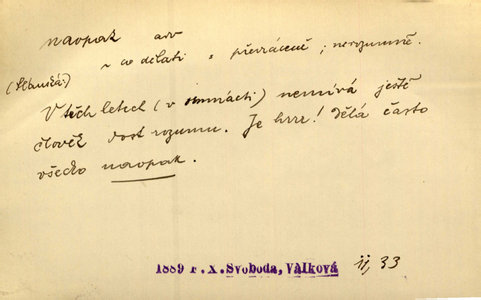 naopak adv
~ co dělati = převráceně; nerozumně.
V těch letech (v osmnácti) nemívá ještě
člověk dost rozumu. Je hrrr! Dělá často
všecko naopak.
1889 F.X. Svoboda, Válková II, 33